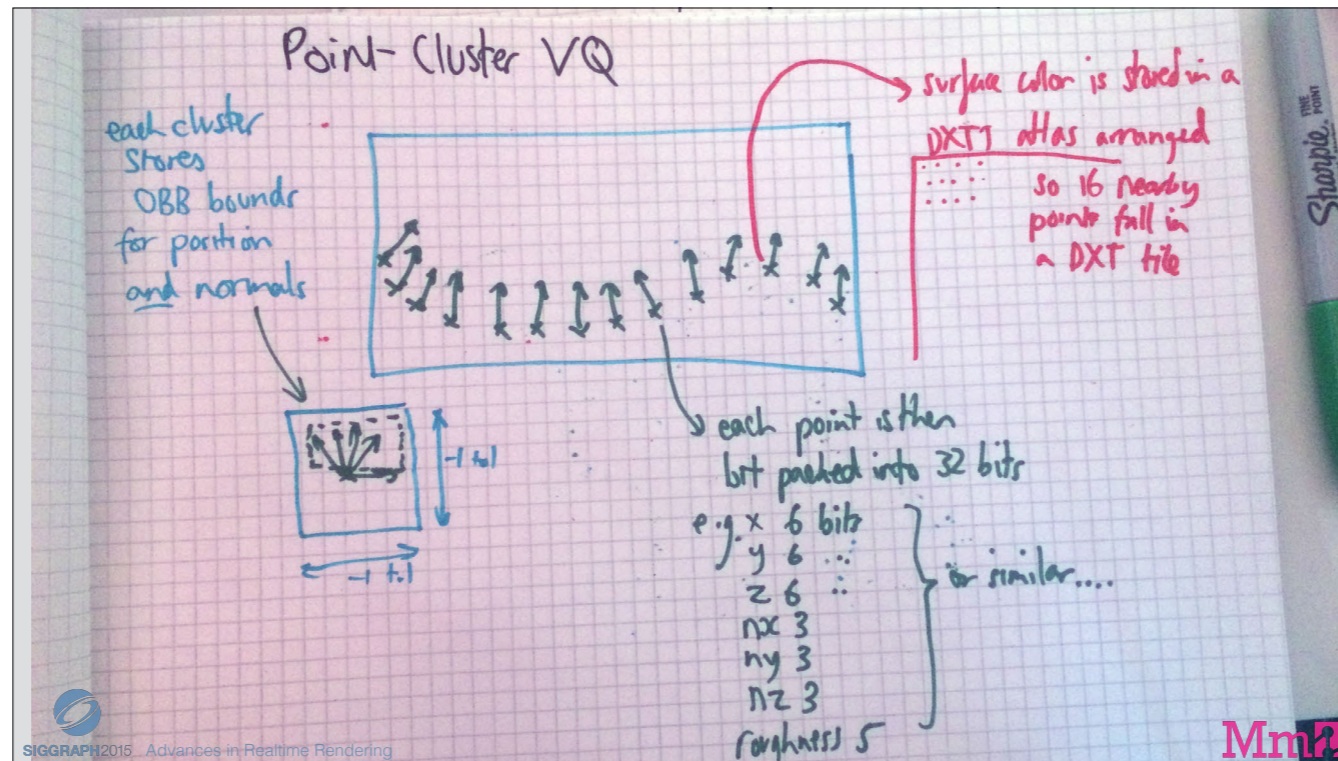 Point-Cluster VQ
each cluster
stores
OBB bounds
for position
and normals
surface color is stored in a
DXT1 atlas arranged
so 16 nearby
points fall in
a DXT tile
-1 to 1
-1 to 1
each point is then
bit packed into 32 bits
e.g. x 6 bits
y 6
z 6
nx 3
ny 3
nz 3
roughness 5
or similar....
Sharpie. FINE POINT
SIGGRAPH2015 Advances in Realtime Rendering